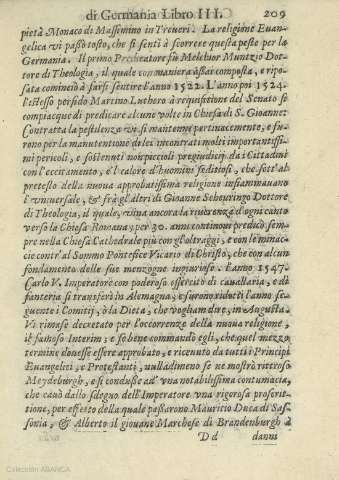 di Germania Libro III. 209
pietà Monaco di Massimino in Treueri. La religione Euan-
gelica vi passò tosto, che si sentì à scorrere questa peste per la
Germania. Il primo Predicatore fù Melchior Muntzio Dot-
tore di Theologia, il quale con maniera assai composta, e ripo-
sata cominciò à farsi sentire l'anno 1522. L'anno poi 1524.
l'istesso perfido Martino Luthero à requisitione del Senato si
compiacque di predicare alcune volte in Chiesa di S. Gioanne:
Contratta la pestilenza vi si mantenne pertinacemente, e fu-
rono per la manutentione de lei incontrati molti importantissi-
mi pericoli, e sostenuti non piccioli pregiudicij da i Cittadini
con l'eccitamento, e 'l calore d'huomini seditiosi, che sott'al
pretesto della nuova approbatissima religione infiammauano
l'vniuersale, & frà gl'altri di Gioanne Scheyringo Dottore
di Theologia, il quale, vinta ancora la riuerenza d'ogni canto
verso la Chiesa Romana, per 30. anni continoui predicò sem-
pre nella Chiesa Cathedrale più con gl'oltraggi, e con le minac-
cie contr'al Sommo Pontefice Vicario di Christo, che con alcun
fondamento delle sue menzogne ingiurioso. L'anno 1547.
Carlo V. Imperatore con poderoso essercito di cauallaria, e di
fanteria si transferì in Alemagna, e furono ridotti l'anno se-
guente i Comitij, ò la Dieta, che vogliam dire, in Augusta.
Vi rimase decretato per l'occorrenze della nuoua religione,
il famoso Interim; e se bene commandò egli, che quel mezzo
termine douesse essere approbato, e riceuuto da tutti i Principi
Euangelici, e Protestanti, nulladimeno se ne mostrò ritroso
Meydeburgh, e si condusse ad'vna notabilissima contumacia,
che cauò dallo sdegno dell'Imperatore vna rigorosa proscrit-
tione, per effetto della quale passarono Mauritio Duca di Sas-
sonia, & Alberto il giouane Marchese di Brandenburgh à
D d danni
Colección ABANCA